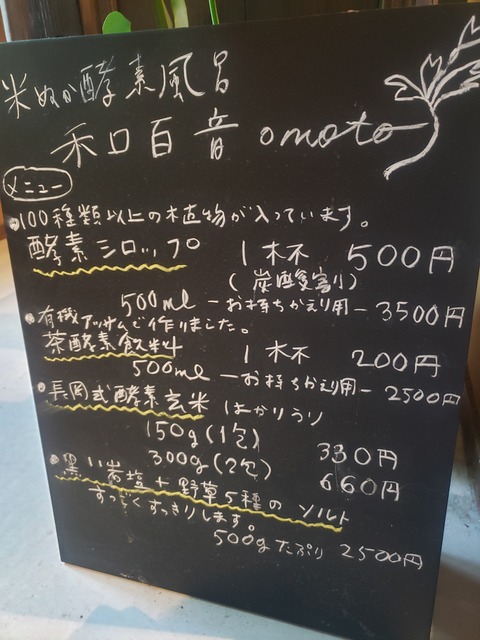 米ぬか酵素風呂
和百音 omoto
メニュー
100種類以上の植物が入っています。
酵素シロップ 1杯 500円
(炭酸割り)
500ml -お持ちかえり用- 3500円
有機アッサムで作りました。
茶酵素飲料 1杯 200円
500ml -お持ちかえり用- 2500円
長岡式酵素玄米 はかりうり
150g(1包) 330円
300g(2包) 660円
黒い岩塩+野草5種のソルト
すっごくすっきりします。
500gたっぷり 2500円